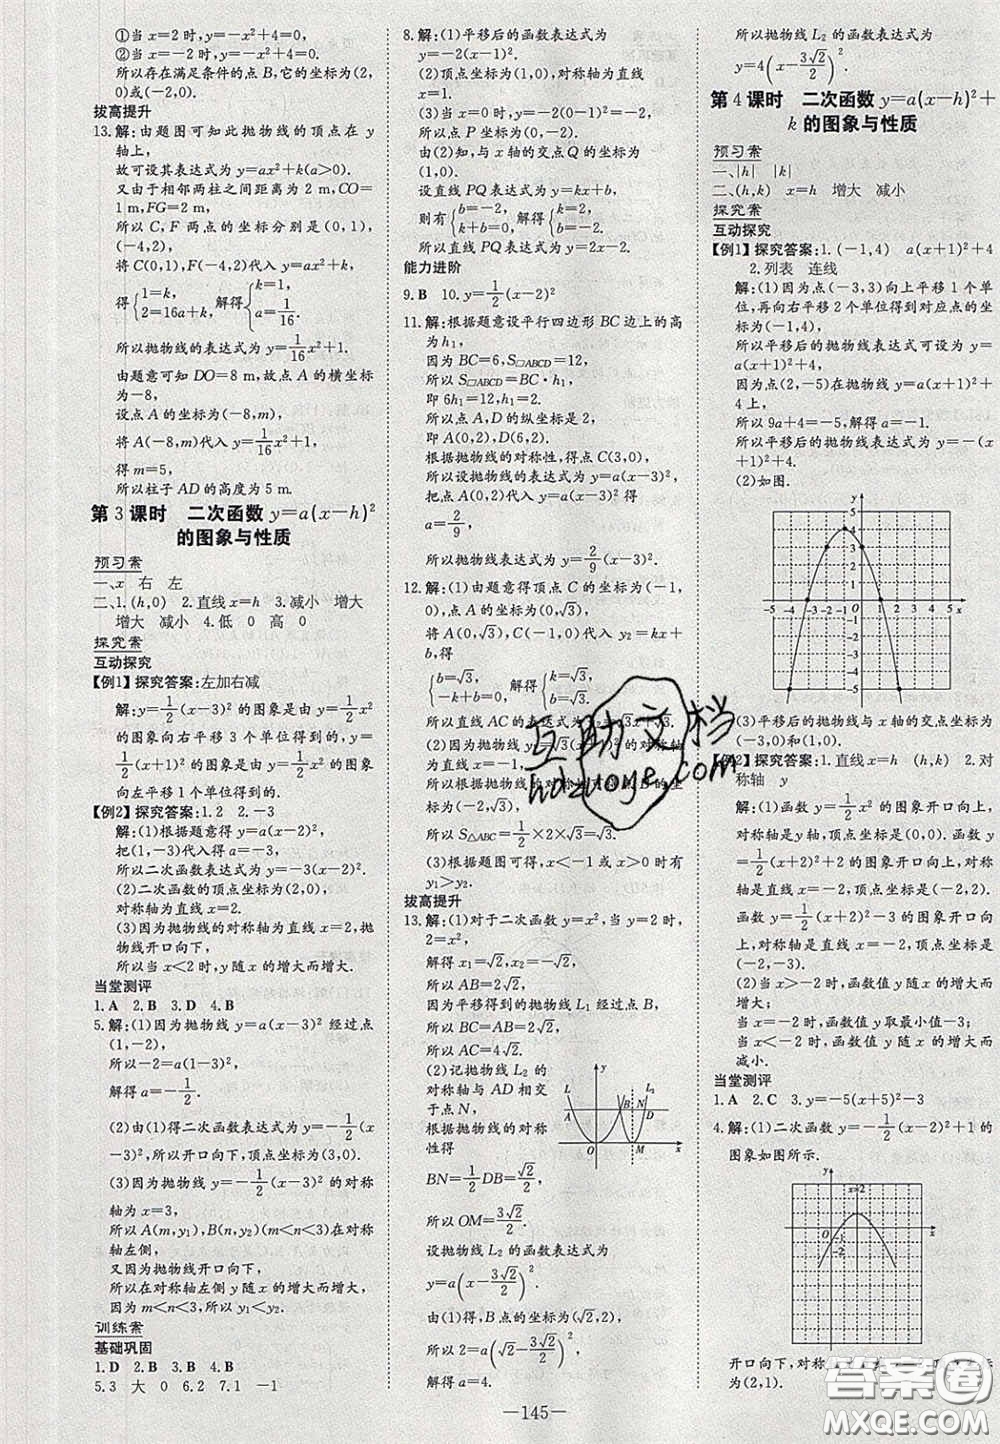 ①当x=2时,y=-x²+4=0;
②当x=-2时,y=-x²+4=0.
所以存在满足条件的点B,它的坐标为(2,
0)或(-2,0).
拔高提升
13.解:由题图可知此抛物线的顶点在y
轴上,
故可设其表达式为y=ax²+k(a>0).
又由于相邻两柱之间距离为2 m,CO=
1 m,FG=2 m,
所以C,F两点的坐标分别是(0,1),
(-4,2),
将C(0,1),F(-4,2)代入y=ax²+k,
得{1=k, 2=16a+k, 解得{k=1, a=1/16.
所以抛物线的表达式为y=1/16x²+1.
由题意可知DO=8 m,故点A的横坐标
为-8,
设点A的坐标为(-8,m),
将A(-8,m)代入y=1/16x²+1,
得m=5,
所以柱子AD的高度为5 m.
第3课时 二次函数y=a(x-h)²
的图象与性质
预习案
一、x 右 左
二、1.(h,0) 2.直线x=h 3.减小 增大
增大 减小 4.低 0 高 0
探究案
互动探究
【例1】探究答案:左加右减
解:y=1/2(x-3)²的图象是由y=1/2x²
的图象向右平移3个单位得到的;
y=1/2(x+1)²的图象是由y=1/2x²的图象
向左平移1个单位得到的.
【例2】探究答案:1.2 2.-3
解:(1)根据题意得y=a(x-2)²,
把(1,-3)代入得a=-3,
所以二次函数表达式为y=-3(x-2)².
(2)二次函数的顶点坐标为(2,0),
对称轴为直线x=2.
(3)因为抛物线的对称轴为直线x=2,
抛物线开口向下,
所以当x<2时,y随x的增大而增大.
当堂测评
1.A 2.B 3.D 4.B
5.解:(1)因为抛物线y=a(x-3)²经过点
(1,-2),
所以-2=a(1-3)²,
解得a=-1/2.
(2)由(1)得二次函数表达式为y=-1/2(x
-3)²,所以开口向下,顶点坐标为(3,0).
(3)因为抛物线y=-1/2(x-3)²的对称
轴为x=3,
所以A(m,y₁),B(n,y₂)(m<n<3)在对称
轴左侧,
又因为抛物线开口向下,
所以在对称轴左侧y随x的增大而增大.
因为m<n<3,所以y₁<y₂.
训练案
基础巩固
1.D 2.B 3.B 4.B
5.3 大 0 6.2 7.1 -1
8.解:(1)平移后的函数表达式为
y=-2(x-1)².
(2)顶点坐标为(1,0),对称轴为直线
x=1.
(3)当x=0时,y=-2(0-1)²=-2,
所以点P坐标为(0,-2).
由(2)知,与x轴的交点Q的坐标为
(1,0).
设直线PQ表达式为y=kx+b,
则有{b=-2, k+b=0, 解得{k=2, b=-2.
所以直线PQ表达式为y=2x-2.
能力进阶
9.B 10.y=1/2(x-2)²
11.解:根据题意设平行四边形BC边上的高
为h₁,
因为BC=6,S□ABCD=12,
所以S□ABCD=BC·h₁,
即6h₁=12,解得h₁=2,
所以点A,D的纵坐标是2,
即A(0,2),D(6,2).
根据抛物线的对称性,得点C(3,0),
所以设抛物线的表达式为y=a(x-3)²,
把点A(0,2)代入得
a=2/9,
所以抛物线的表达式为y=2/9(x-3)².
12.解:(1)由题意得顶点C的坐标为(-1,
0),点A的坐标为(0,√3),
将A(0,√3),C(-1,0)代入y₂=kx+
b,得
{b=√3, -k+b=0, 解得{k=√3, b=√3.
所以直线AC的表达式为y₂=√3x+√3.
为直线x=-1.
(-2,√3),
所以S△ABC=1/2×2×√3=√3.
(3)根据题图可得,x<-1或x>0时有
y₁>y₂.
拔高提升
13.解:(1)对于二次函数y=x²,当y=2时,
2=x²,
解得x₁=√2,x₂=-√2,
所以AB=2√2.
因为平移得到的抛物线L₁经过点B,
所以BC=AB=2√2,
所以AC=4√2.
(2)记抛物线L₂的
对称轴与AD相交
于点N,
根据抛物线的对称
性得
BN=1/2DB=√2/2,
所以OM=3√2/2.
L y L₃
A B N D
O M x
设抛物线L₂的函数表达式为
y=a(x-3√2/2)².
由(1)得,B点的坐标为(√2,2),
所以2=a(√2-3√2/2)²,
解得a=4.
所以抛物线L₂的函数表达式为
y=4(x-3√2/2)².
第4课时 二次函数y=a(x-h)²+
k的图象与性质
预习案
一、|h| |k|
二、(h,k) x=h 增大 减小
探究案
互动探究
【例1】探究答案:1.(-1,4) a(x+1)²+4
2.列表 连线
解:(1)因为点(-3,3)向上平移1个单
位,再向右平移2个单位得到对应点的坐
标为(-1,4),
所以平移后的抛物线的表达式可设为y=
a(x+1)²+4.
因为点(2,-5)在抛物线y=a(x+1)²+
4上,
所以9a+4=-5,解得a=-1.
所以平移后的抛物线表达式为y=-(x
+1)²+4.
(2)如图.
y
5
4
3
2
1
-5 -4 -3 -2 -1 O 1 2 3 4 5 x
-1
-2
-3
-4
-5
(3)平移后的抛物线与x轴的交点坐标为
(-3,0)和(1,0).
【例2】探究答案:1.直线x=h (h,k) 2.对
称轴 y
解:(1)函数y=1/2x²的图象开口向上,
对称轴是y轴,顶点坐标是(0,0).函数y
=1/2(x+2)²+2的图象开口向上,对称轴
是x=-2,顶点坐标是(-2,2).
函数y=1/2(x+2)²-3的图象开口向
上,对称轴是x=-2,顶点坐标是(-2,
-3).
(2)当x>-2时,函数值y随x的增大而
增大;
当x=-2时,函数值y取最小值-3;
当x<-2时,函数值y随x的增大而
减小.
当堂测评
1.A 2.C 3.y=-5(x+5)²-3
4.解:(1)二次函数y=-1/2(x-2)²+1的
图象如图所示.
y x=2
O 1 x
-2
开口向下,对称
为(2,1).
互助文档
hdzuoye.com
答案圈
MXQE.COM
—145—